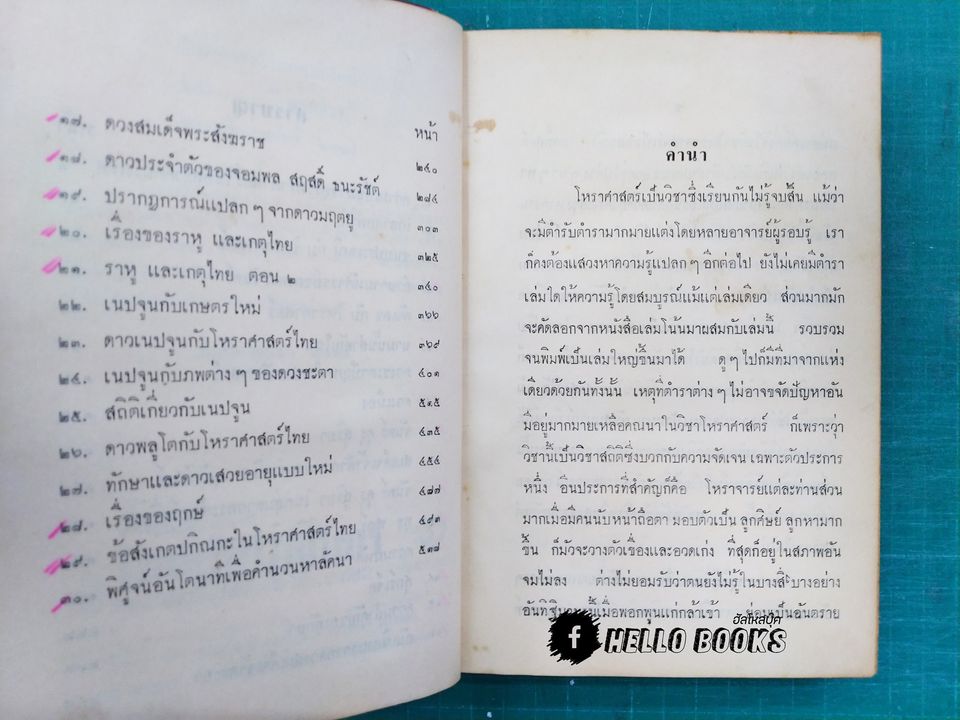 หน้า
๑๗. ดวงสมเด็จพระสังฆราช ๒๔๐
๑๘. ดาวประจำตัวของจอมพล สฤสดิ์ ธนะรัชต์ ๒๘๔
๑๙. ปรากฎการณ์แปลก ๆ จากดาวมฤตยู ๓๐๓
๒๐. เรื่องของราหู และเกตุไทย ๓๒๕
๒๑. ราหู และเกตุไทย ตอน ๒ ๓๔๐
๒๒. เนปจูนกับเกษตรใหม่ ๓๖๖
๒๓. ดาวเนปจูนกับโหราศาสตร์ไทย ๓๖๙
๒๔. เนปจูนกับภพต่าง ๆ ของดวงชะตา ๔๐๑
๒๕. สถิติเกี่ยวกับเนปจูน
๒๖. ดาวพลูโตกับโหราศาสตร์ไทย ๔๓๕
๒๗. ทักษาและดาวเสวยอายุแบบใหม่ ๔๕๔
๒๘. เรื่องของฤกษ์ ๔๗๗
๒๙. ข้อสังเกตปกิณกะในโหราศาสตร์ไทย ๔๙๓
๓๐. พิศูจน์อันโตนาทีเพื่อคำนวนหาลัคนา ๕๑๗
คำนำ
โหราศาสตร์เป็นวิชาซึ่งเรียนกันไม่รู้จบสิ้น แม้ว่า
จะมีตำรับตำรามากมายแต่งโดยหลายอาจารย์ผู้รอบรู้ เรา
ก็คงต้องแสวงหาความรู้แปลก ๆ อีกต่อไป ยังไม่เคยมีตำรา
เล่มใดให้ความรู้โดยสมบูรณ์แม้แต่เล่มเดียว ส่วนมากมัก
จะคัดลอกจากหนังสือเล่มโน้นมาผสมกับเล่มนี้ รวบรวม
จนพิมพ์เป็นเล่มใหญ่ขึ้นมาได้ ดู ๆ ไปก็มีที่มาจากแห่ง
เดียวด้วยกันทั้งนั้น เหตุที่ตำราต่าง ๆ ไม่อาจขจัดปัญหาอัน
มีอยู่มากมายเหลือคณนาในวิชาโหราศาสตร์ ก็เพราะว่า
วิชานี้เป็นวิชาสถิติซึ่งบวกกับความจัดเจน เฉพาะตัวประการ
หนึ่ง อีกประการที่สำคัญก็คือ โหราจารย์แต่ละท่านส่วน
มากเมื่อมีคนนับหน้าถือตา มอบตัวเป็น ลูกศิษย์ ลูกหามาก
ขึ้น ก็มัวจะวางตัวเขื่องและอวดเก่ง ที่สุดก็อยู่ในสภาพอัน
จมไม่ลง ต่างไม่ยอมรับว่าตนยังไม่รู้ในบางสิ่งบางอย่าง
เมื่อพอกพูนแก่กล้าเข้า ย่อมเป็นอันตราย
ฮัลโหลบุ๊ค
f HELLO BOOKS